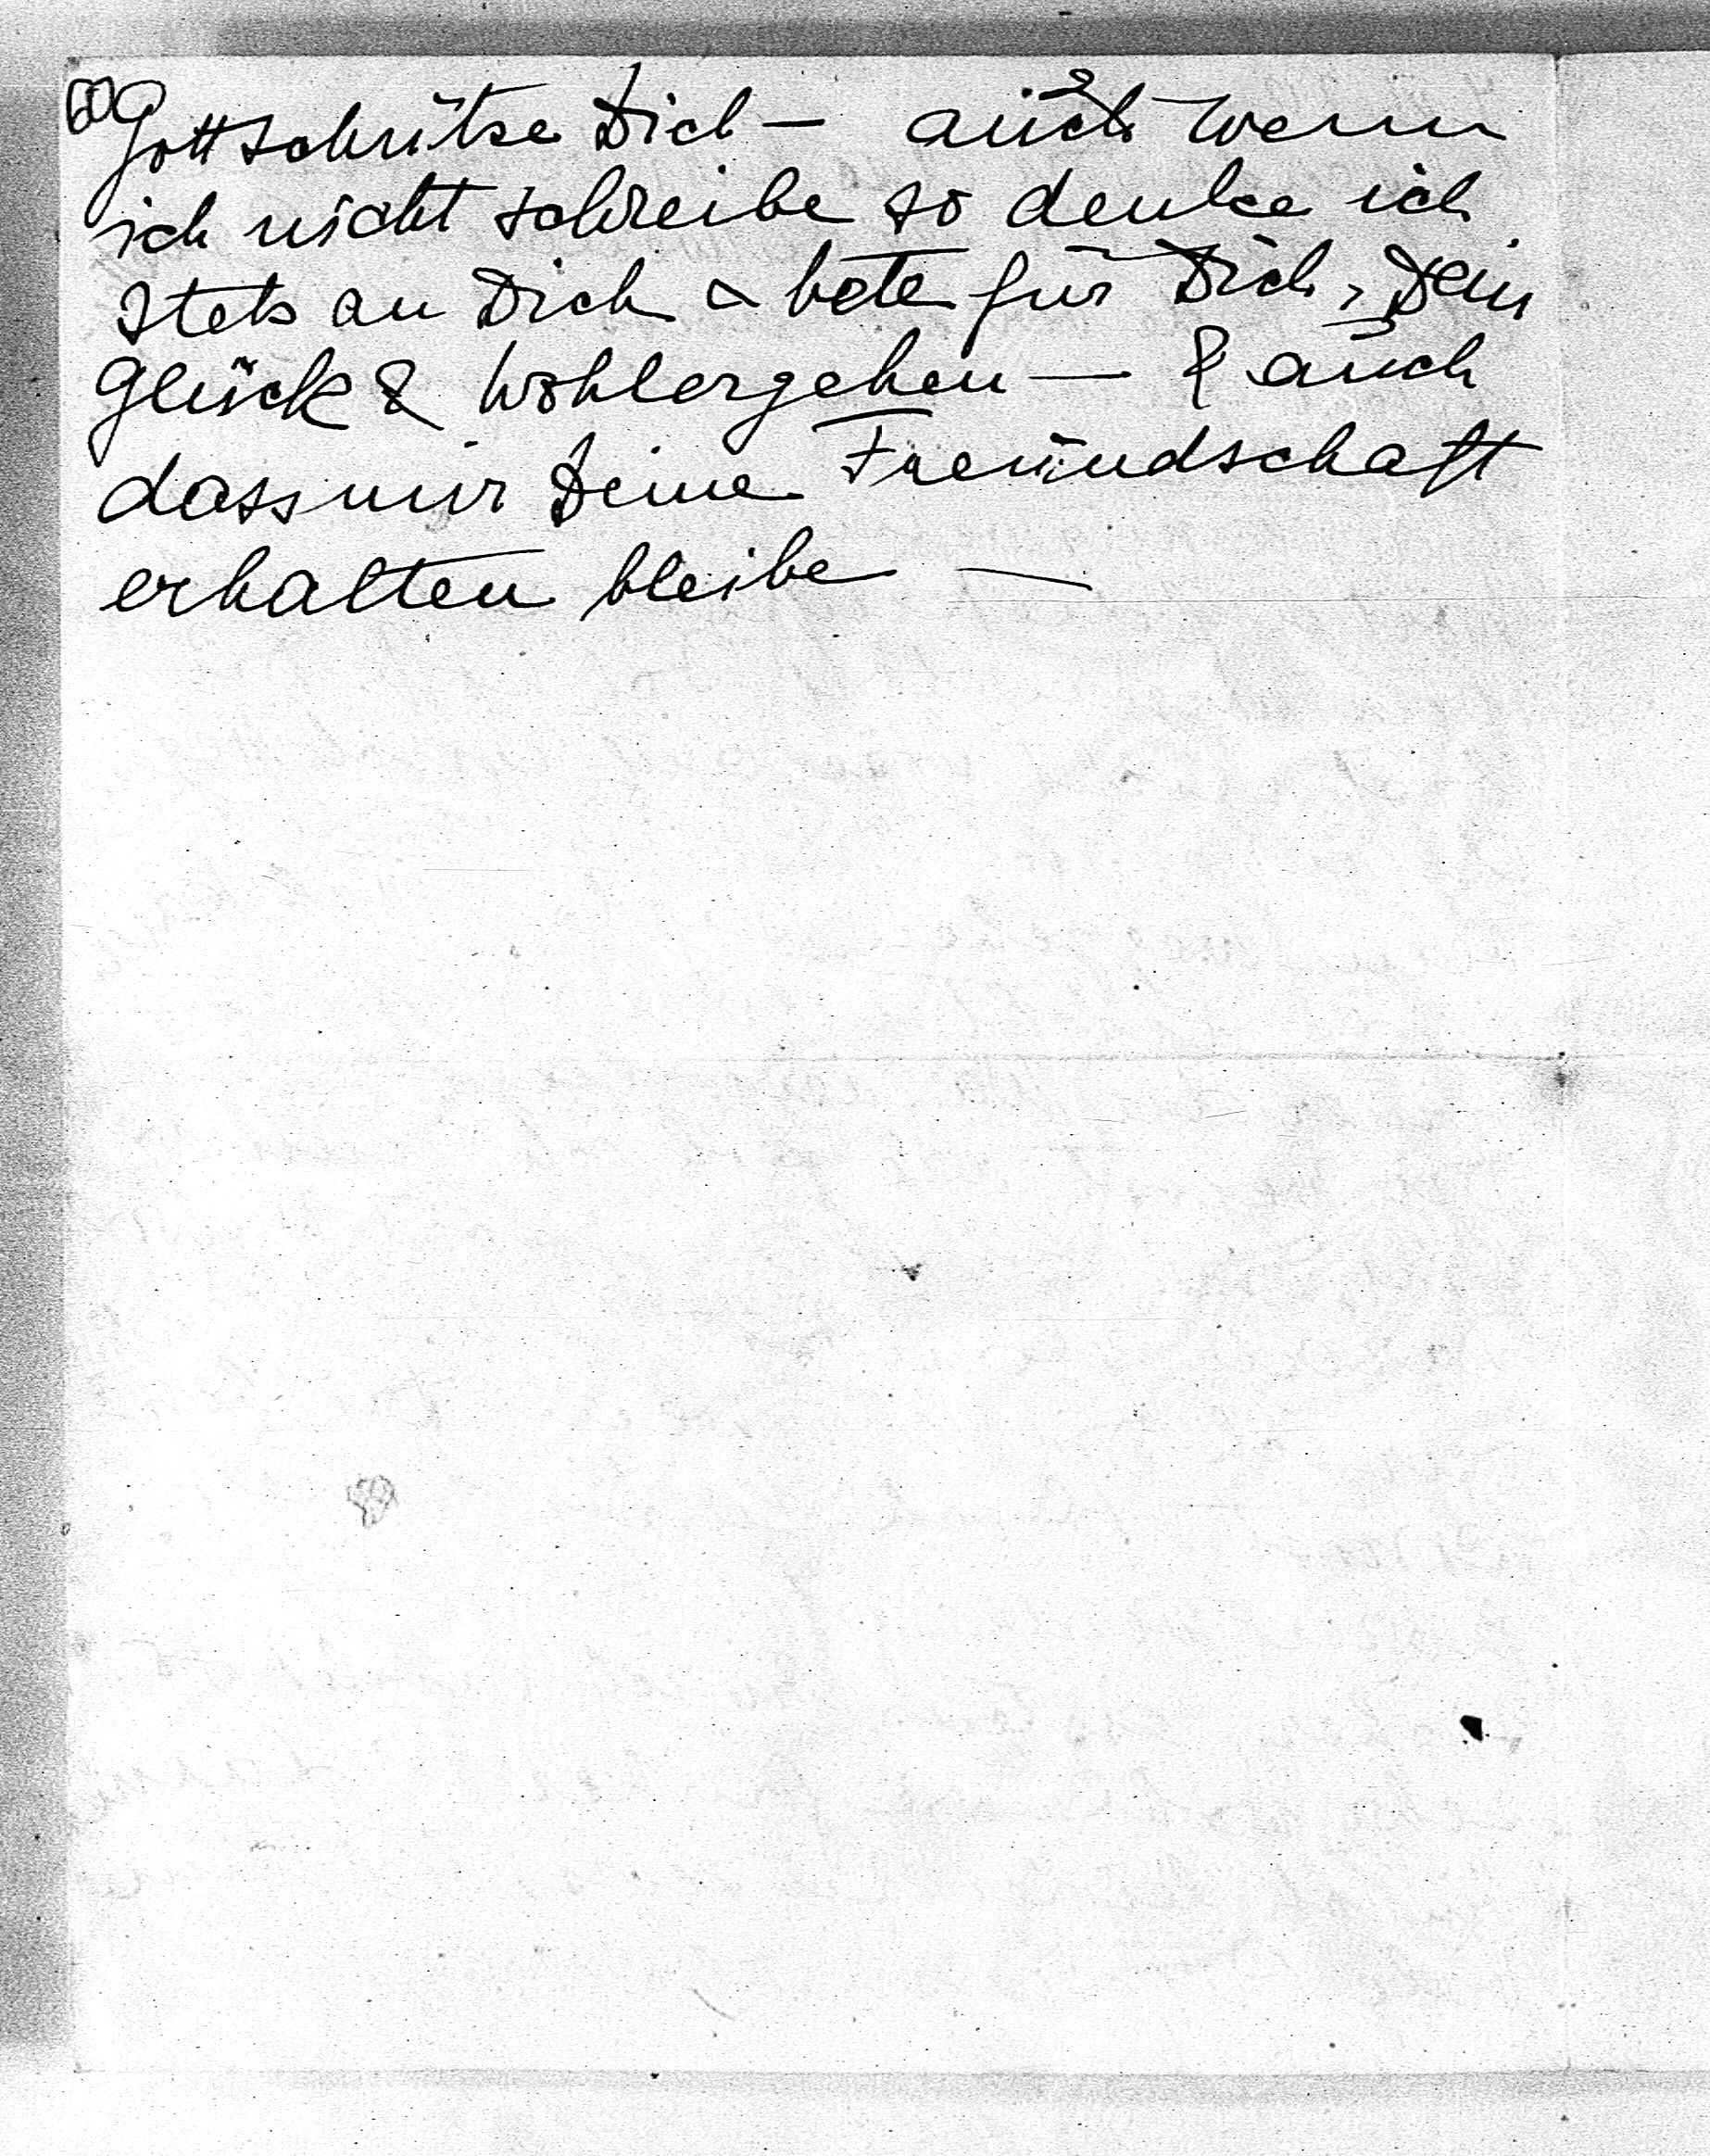 Gott schütze Dich — auch wenn
ich nicht schreibe so denke ich
stets an Dich & bete für Dich, Dein
Glück & Wohlergehen — & auch
dass mir Deine Freundschaft
erhalten bleibe —